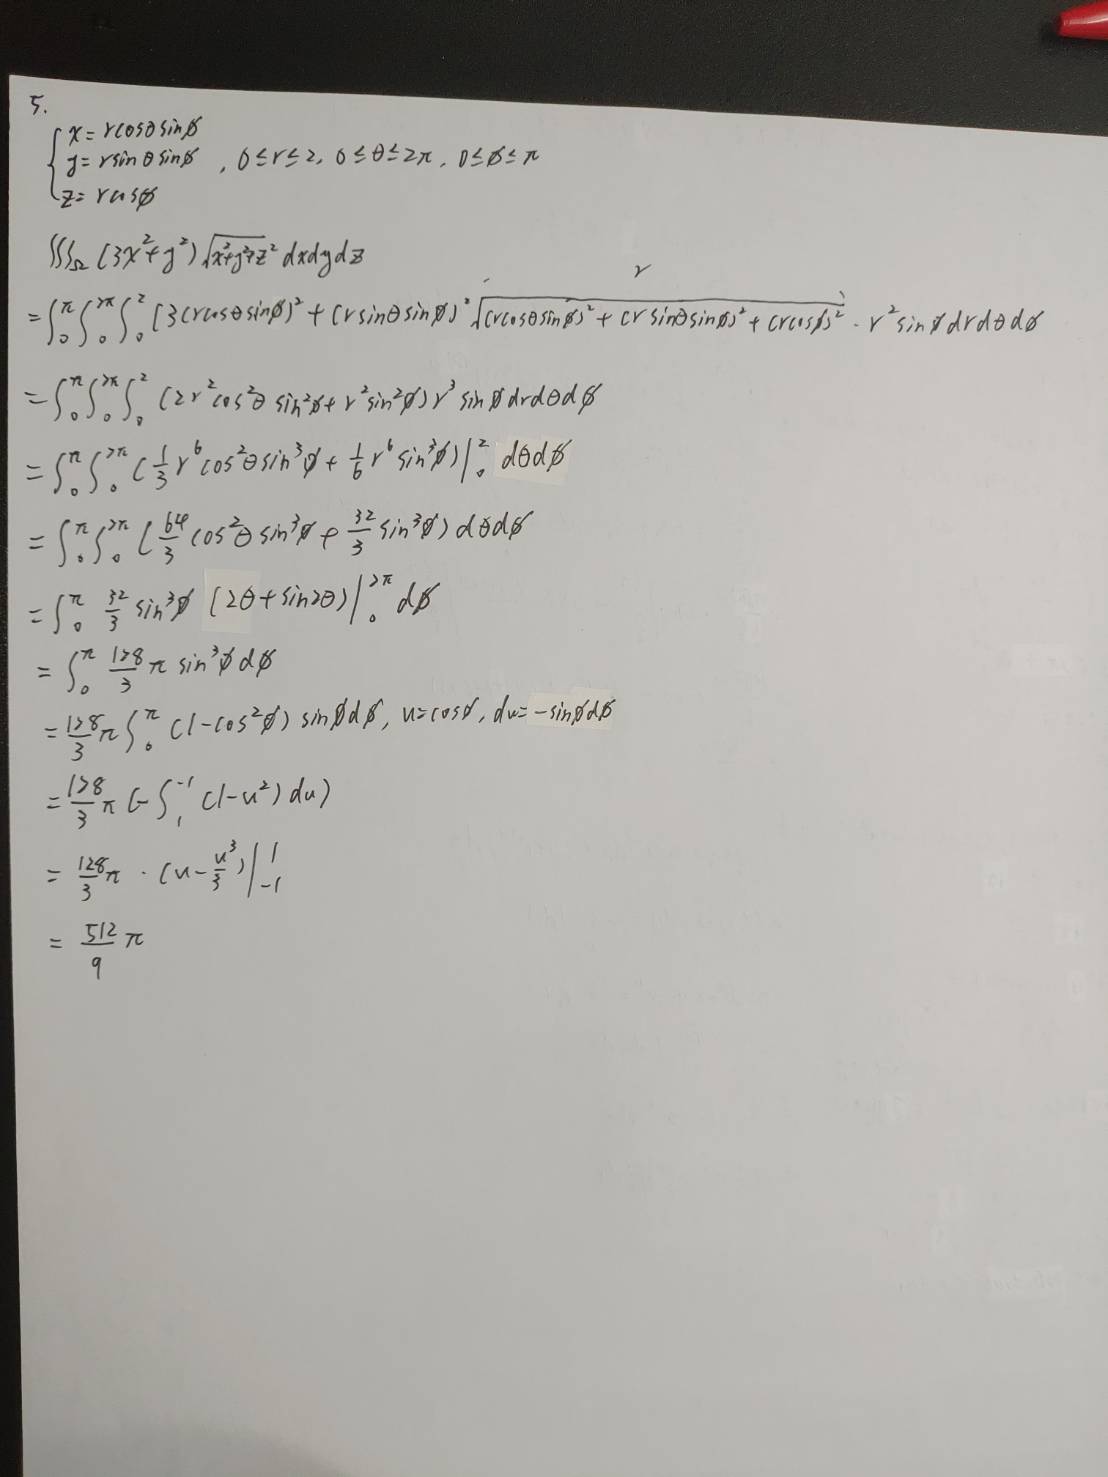 5.
{ x = rcosθsinφ
y = rsinθsinφ , 0 ≤ r ≤ 2, 0 ≤ θ ≤ 2π, 0 ≤ φ ≤ π
z = rcosφ
∭_Ω (3x²+y²)√(x²+y²+z²) dxdydz
r
= ∫₀^π ∫₀^2π ∫₀^2 [3(rcosθsinφ)² + (rsinθsinφ)² √((rcosθsinφ)² + (rsinθsinφ)² + (rcosφ)²) · r² sinφ drdθdφ
= ∫₀^π ∫₀^2π ∫₀^2 (2r²cos²θ sin²φ + r²sin²φ) r³ sinφ drdθdφ
= ∫₀^π ∫₀^2π (1/3 r⁶ cos²θ sin³φ + 1/6 r⁶ sin³φ)|₀² dθdφ
= ∫₀^π ∫₀^2π (64/3 cos²θ sin³φ + 32/3 sin³φ) dθdφ
= ∫₀^π 32/3 sin³φ (2θ + sin2θ)|₀^2π dφ
= ∫₀^π 128/3 π sin³φ dφ
= 128/3 π ∫₀^π (1-cos²φ) sinφdφ, u=cosφ, du=-sinφdφ
= 128/3 π (-∫₁^-1 (1-u²) du)
= 128/3 π · (u - u³/3)|₋₁^1
= 512/9 π